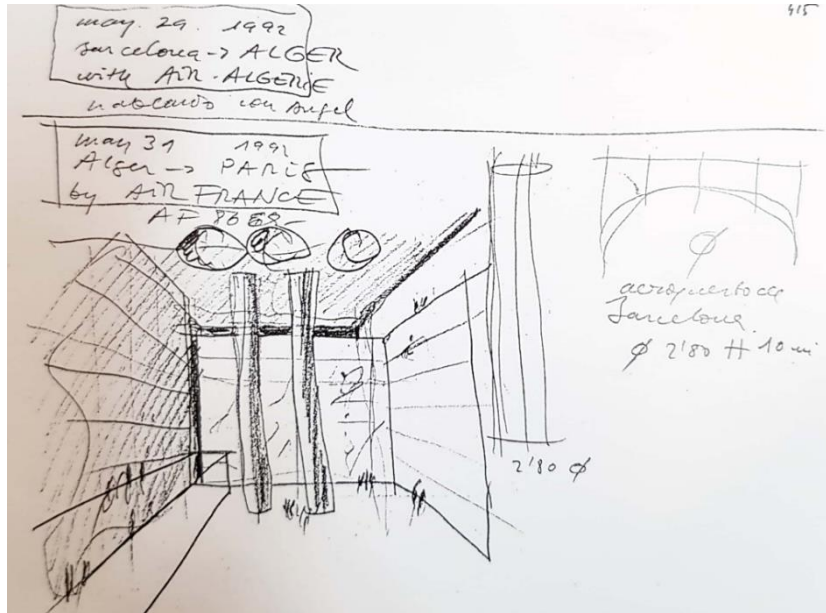 may. 29. 1992
Barcelona -> ALGER
with AIR-ALGERIE
con Angel
may 31 1992
Alger -> PARIS
by AIR FRANCE
AF
415
aeropuerto de
Barcelona
ø 2'80 H 10 m
2'80 ø